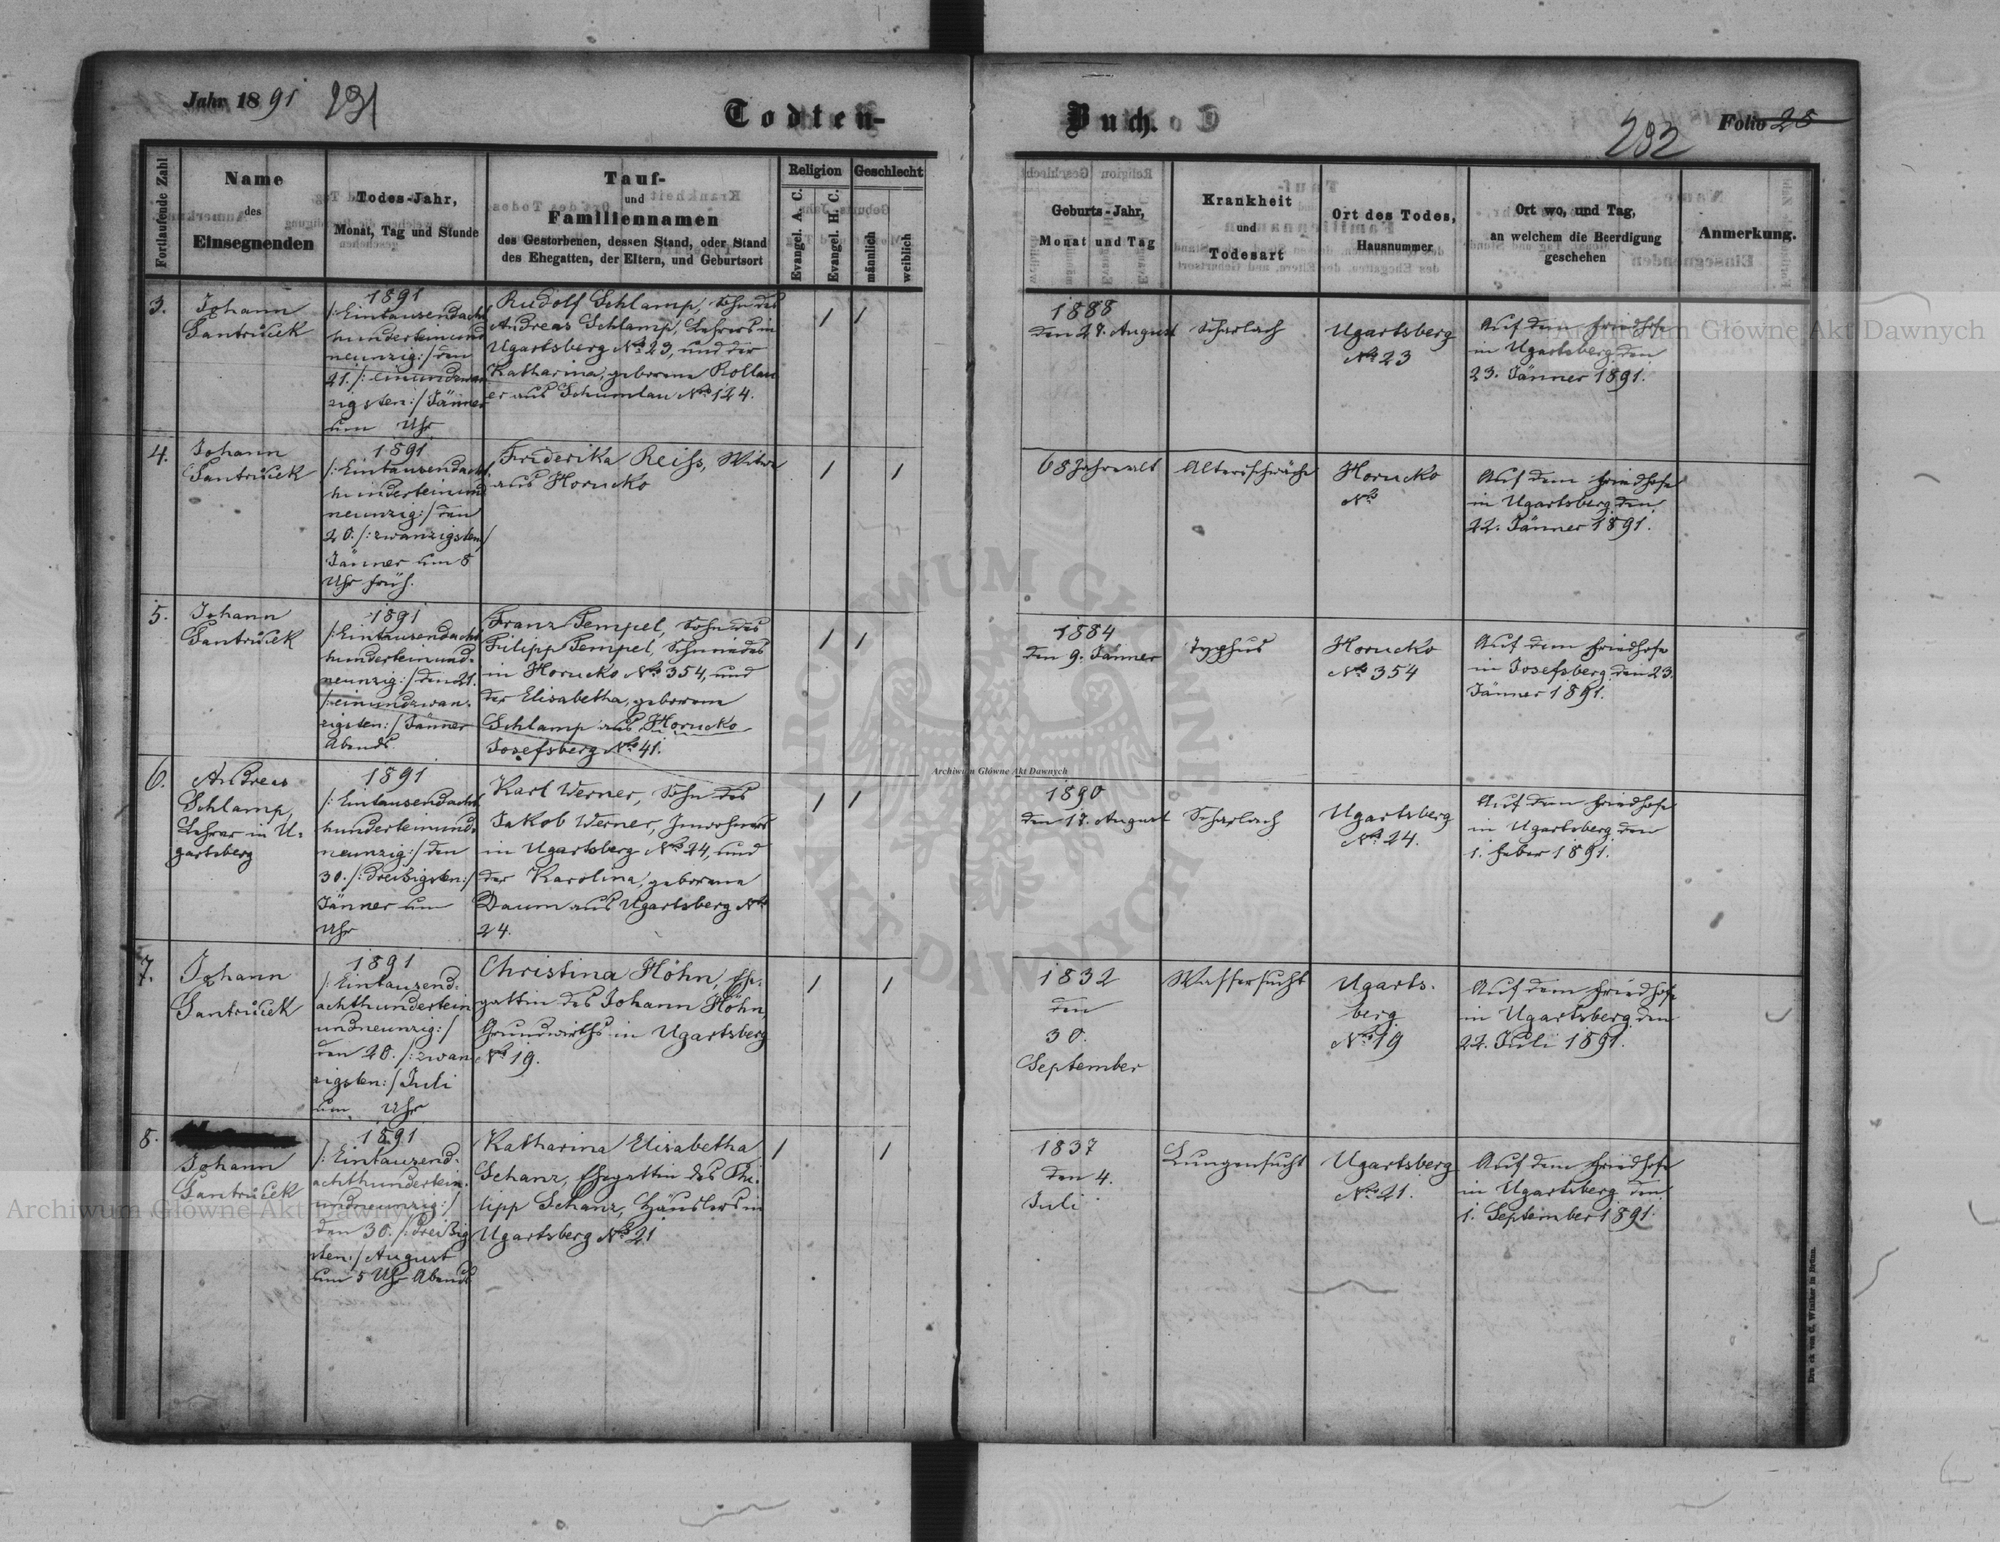 Jahr 1891
231
Todten-
Buch.
232
Folio 25
Fortlaufende Zahl
Name
des
Einsegnenden
Todes-Jahr,
Monat, Tag und Stunde
Tauf-
und
Familiennamen
des Gestorbenen, dessen Stand, oder Stand
des Ehegatten, der Eltern, und Geburtsort
Religion
Evangel. A. C.
Evangel. H. C.
Geschlecht
männlich
weiblich
Geburts-Jahr,
Monat und Tag
Krankheit
und
Todesart
Ort des Todes,
Hausnummer
Ort wo, und Tag,
an welchem die Beerdigung
geschehen
Anmerkung.
3.
Johann
Jantrůček
1891
/:Eintausendacht
hunderteinund
neunzig:/ den
21. /:einundzwan
zigsten:/ Jänner
um Uhr
Rudolf Schlamp, Sohn des
Andreas Schlamp, Lehrers in
Ugartsberg No 23, und der
Katharina, geborene Rollau
er aus Schumlau No 124.
/ /
1888
den 27. August
Scharlach
Ugartsberg
No 23
Auf dem Friedhofe
in Ugartsberg den
23. Jänner 1891.
4.
Johann
Jantrůček
1891
/:Eintausendacht
hunderteinund
neunzig:/ den
20. /:zwanzigsten:/
Jänner um 8
Uhr früh.
Friderika Reiss, Witwe
aus Horucko
/ /
68 Jahre alt
Altersschwäche
Horucko
No
Auf dem Friedhofe
in Ugartsberg den
22. Jänner 1891.
5.
Johann
Jantrůček
1891
/:Eintausendacht
hunderteinund-
neunzig:/ den 21.
/:einundzwan-
zigsten:/ Jänner
Abends.
Franz Tempel, Sohn des
Filipp Tempel, Schmiedes
in Horucko No 354, und
der Elisabetha, geborene
Schlamp aus Horucko
Josefsberg No 41.
/ /
1884
den 9. Jänner
Typhus
Horucko
No 354
Auf dem Friedhofe
in Josefsberg den 23.
Jänner 1891.
6.
Andreas
Schlamp,
Lehrer in U-
gartsberg
1891
/:Eintausendacht
hunderteinund-
neunzig:/ den
30. /:dreißigsten:/
Jänner um
Uhr
Karl Werner, Sohn des
Jakob Werner, Inwohners
in Ugartsberg No 24, und
der Karolina, geborene
Daum aus Ugartsberg No
24.
/ /
1890
den 17. August
Scharlach
Ugartsberg
No 24.
Auf dem Friedhofe
in Ugartsberg den
1. Feber 1891.
7.
Johann
Jantrůček
1891
/:Eintausend-
achthundertein
undneunzig:/
den 20. /:zwan
zigsten:/ Juli
um Uhr
Christina Höhn, Ehe-
gattin des Johann Höhn,
Grundwirths in Ugartsberg
No 19.
/ /
1832
den
30.
September
Wassersucht
Ugarts-
berg
No 19
Auf dem Friedhofe
in Ugartsberg den
22. Juli 1891.
8.
Johann
Jantrůček
1891
/:Eintausend-
achthundertein-
undneunzig:/
den 30. /:dreißig
sten:/ August
um 5 Uhr Abends
Katharina Elisabetha
Schanz, Ehegattin des Phi-
lipp Schanz, Häuslers in
Ugartsberg No 21
/ /
1837
den 4.
Juli
Lungensucht
Ugartsberg
No 21.
Auf dem Friedhofe
in Ugartsberg den
1. September 1891.
Archiwum Główne Akt Dawnych
Archiwum Główne Akt Dawnych
Archiwum Główne Akt Dawnych
ARCHIWUM GŁÓWNE AKT DAWNYCH
Druck von C. Winiker in Brünn.